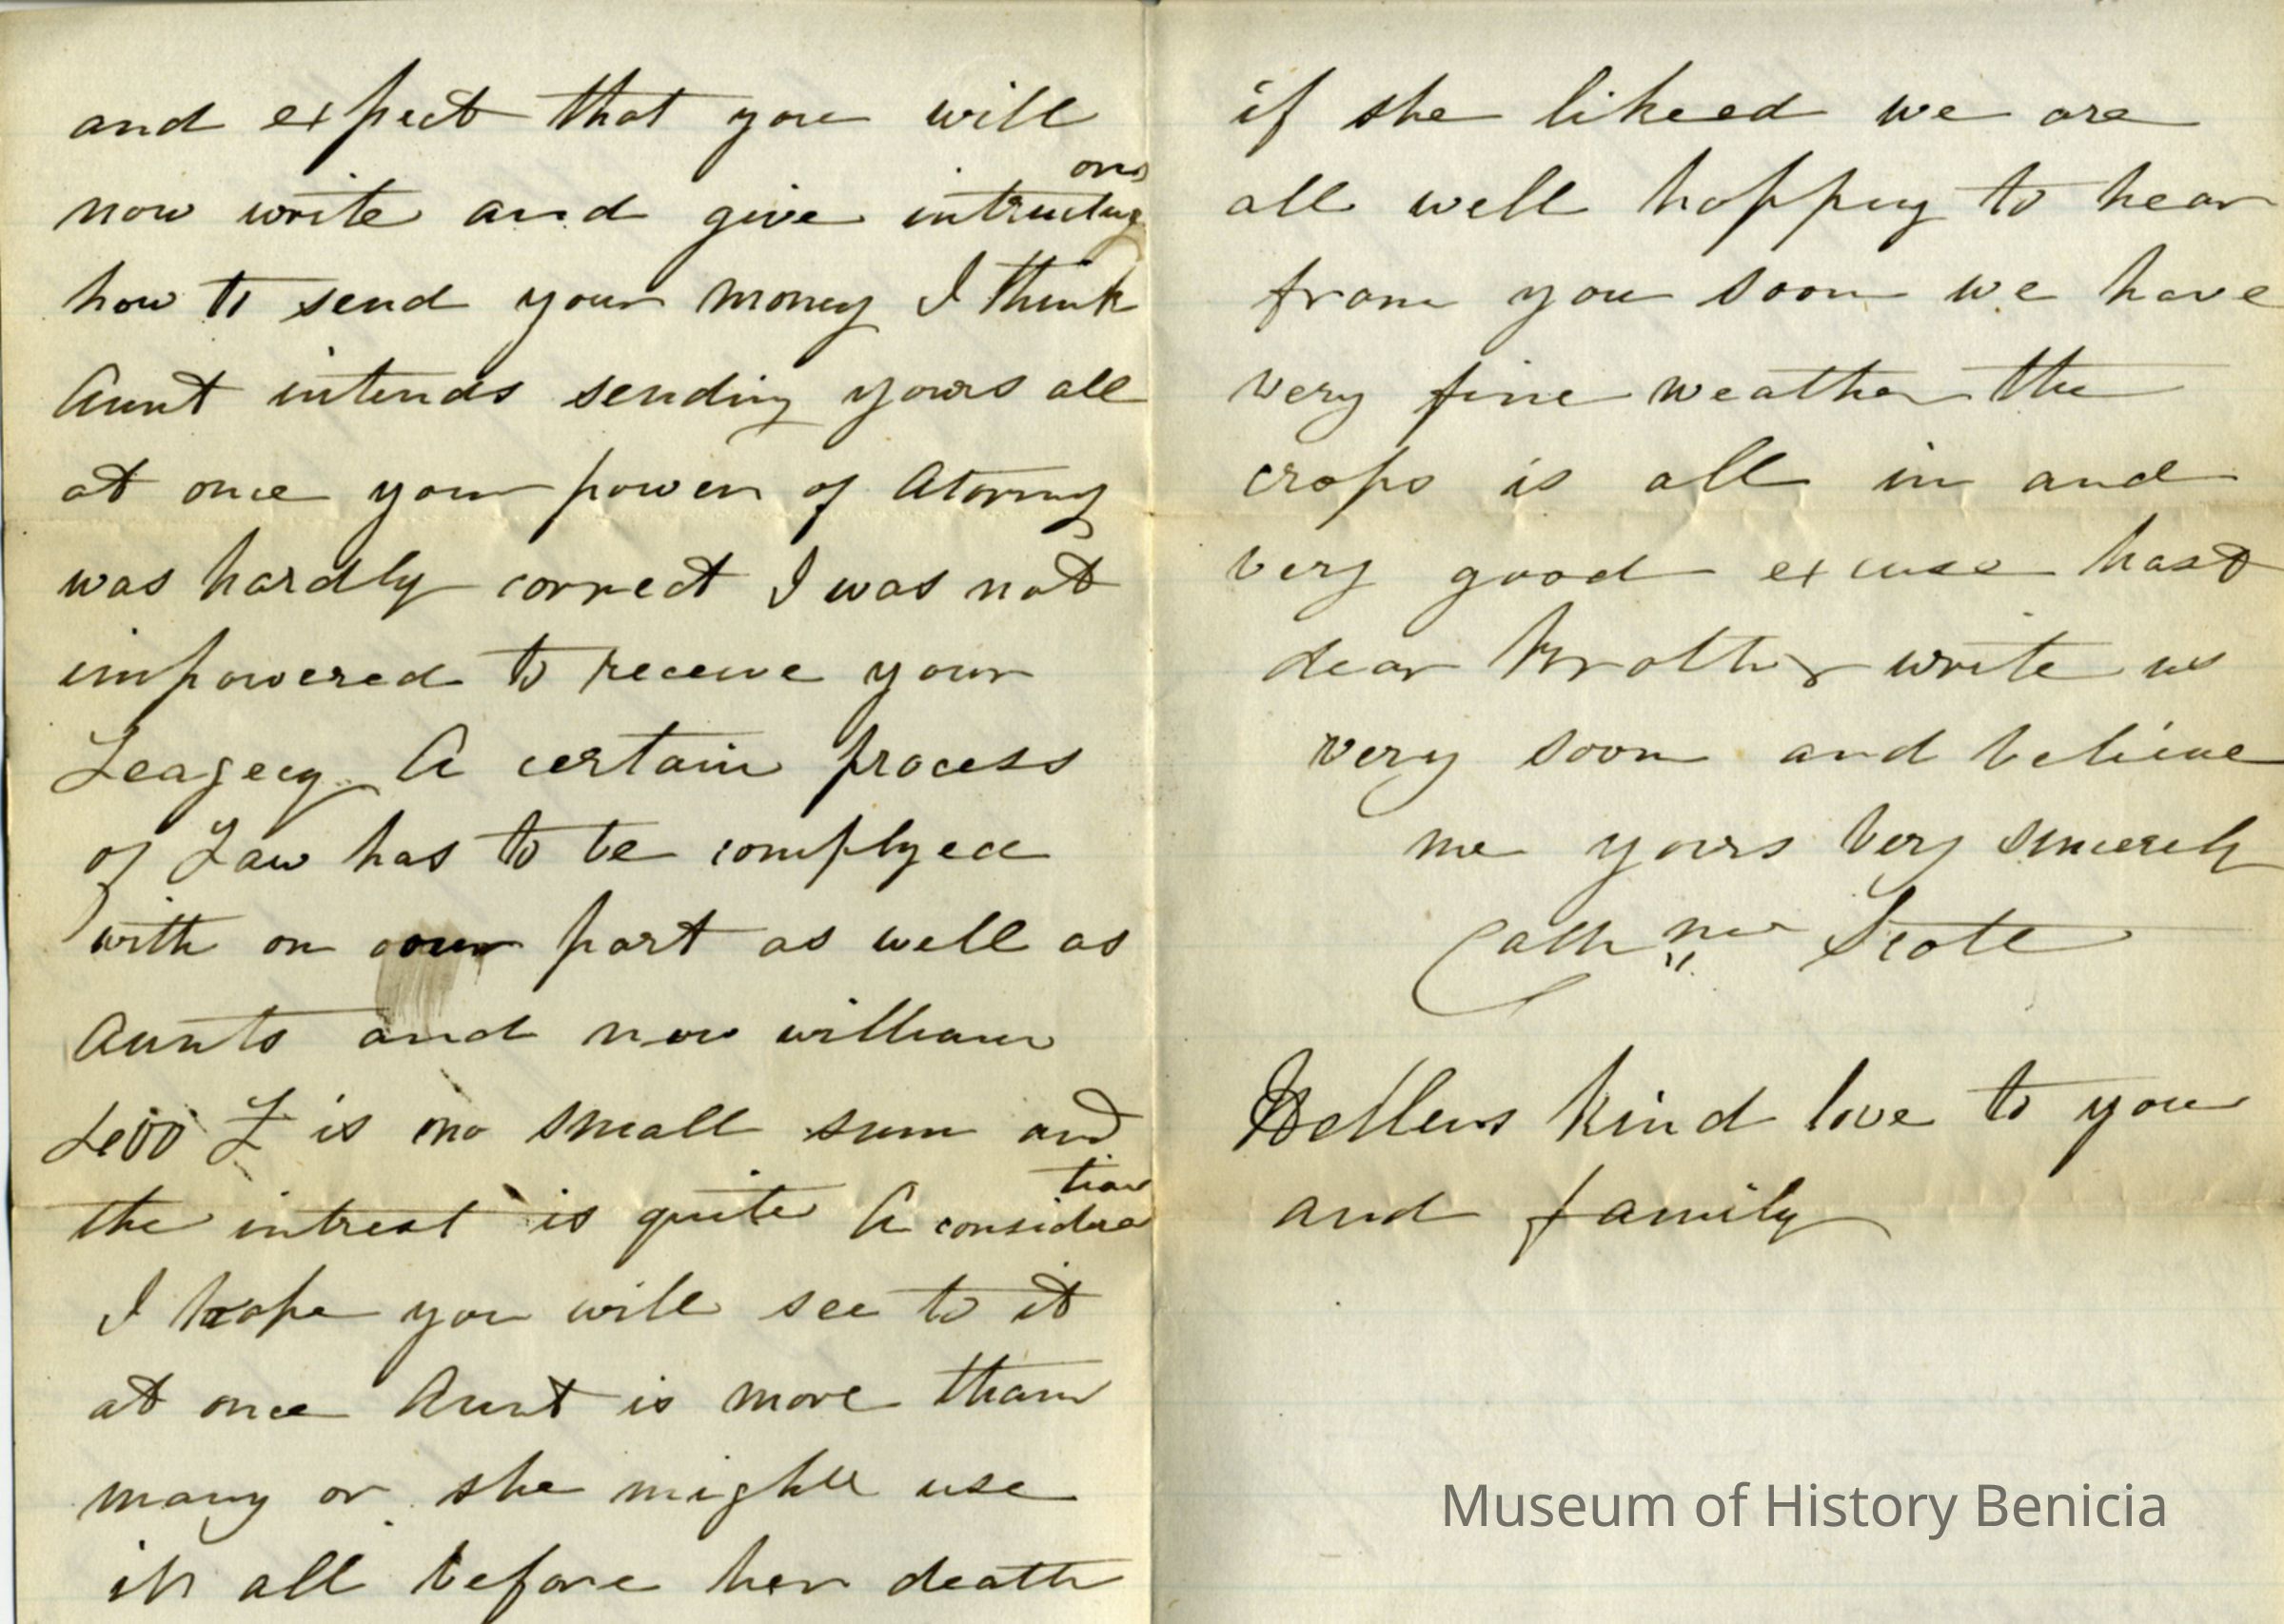 and expect that you will
now write and give intructions
how to send your money I think
Aunt intends sending yours all
at once your power of Atorny
was hardly correct I was not
impowered to receive your
Leagecy A certain process
of Law has to be complyed
with on our part as well as
Aunts and now william
£ is no small sum and
the intrest is quite A consideration
I hope you will see to it
at once Aunt is more than
many or she might use
it all before her death
if she likeed we are
all well hopping to hear
from you soon we have
very fine weather the
crops is all in and
very good excuse hast
dear Brother write us
very soon and believe
me yours very sincerely
Cathne Scott
Hellens kind love to you
and family
Museum of History Benicia